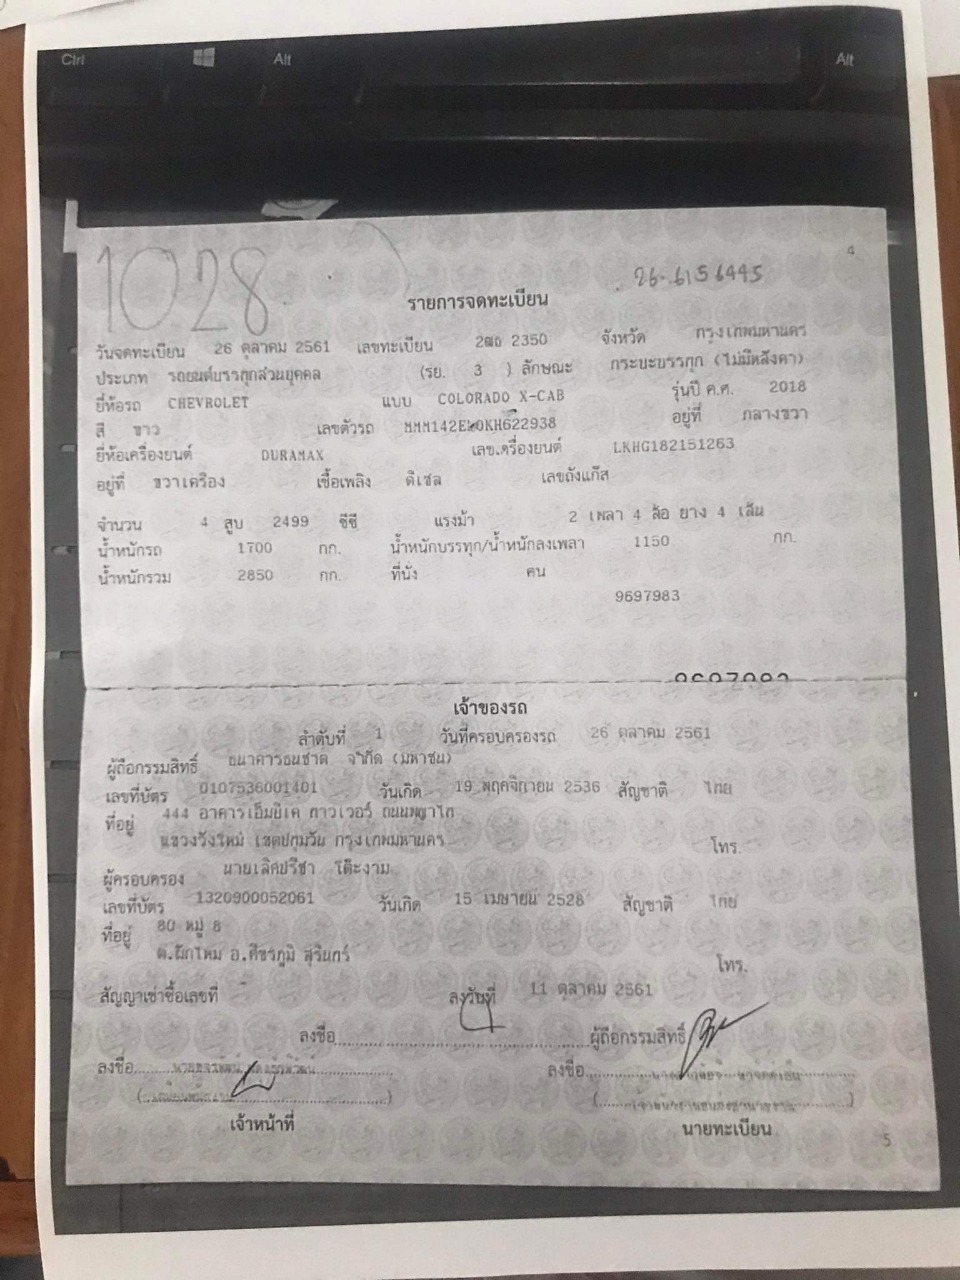 Ctrl Alt Alt
4
1028
26-6156445
รายการจดทะเบียน
วันจดทะเบียน 26 ตุลาคม 2561 เลขทะเบียน 2ฒถ 2350 จังหวัด กรุงเทพมหานคร
ประเภท รถยนต์บรรทุกส่วนบุคคล (รย. 3 ) ลักษณะ กระบะบรรทุก (ไม่มีหลังคา)
ยี่ห้อรถ CHEVROLET แบบ COLORADO X-CAB รุ่นปี ค.ศ. 2018
สี ขาว เลขตัวรถ อยู่ที่ กลางขวา
ยี่ห้อเครื่องยนต์ DURAMAX เลขเครื่องยนต์ LKHG182151263
อยู่ที่ ขวาเครื่อง เชื้อเพลิง ดีเซล เลขถังแก๊ส
จำนวน 4 สูบ 2499 ซีซี แรงม้า 2 เพลา 4 ล้อ ยาง 4 เส้น
น้ำหนักรถ 1700 กก. น้ำหนักบรรทุก/น้ำหนักลงเพลา 1150 กก.
น้ำหนักรวม 2850 กก. ที่นั่ง คน
9697983
เจ้าของรถ
ลำดับที่ 1 วันที่ครอบครองรถ 26 ตุลาคม 2561
ผู้ถือกรรมสิทธิ์ ธนาคารธนชาต จำกัด (มหาชน)
เลขที่บัตร 0107536001401 วันเกิด 19 พฤศจิกายน 2536 สัญชาติ ไทย
ที่อยู่ 444 อาคารเอ็มบีเค ทาวเวอร์ ถนนพญาไท
แขวงวังใหม่ เขตปทุมวัน กรุงเทพมหานคร โทร.
ผู้ครอบครอง นายเลิศปรีชา โต๊ะงาม
เลขที่บัตร 1320900052061 วันเกิด 15 เมษายน 2528 สัญชาติ ไทย
ที่อยู่ 80 หมู่ 8
ต.ผักไหม อ.ศีขรภูมิ สุรินทร์ โทร.
สัญญาเช่าซื้อเลขที่ - ลงวันที่ 11 ตุลาคม 2561
ลงชื่อ ผู้ถือกรรมสิทธิ์
ลงชื่อ ลงชื่อ
เจ้าหน้าที่ นายทะเบียน
5